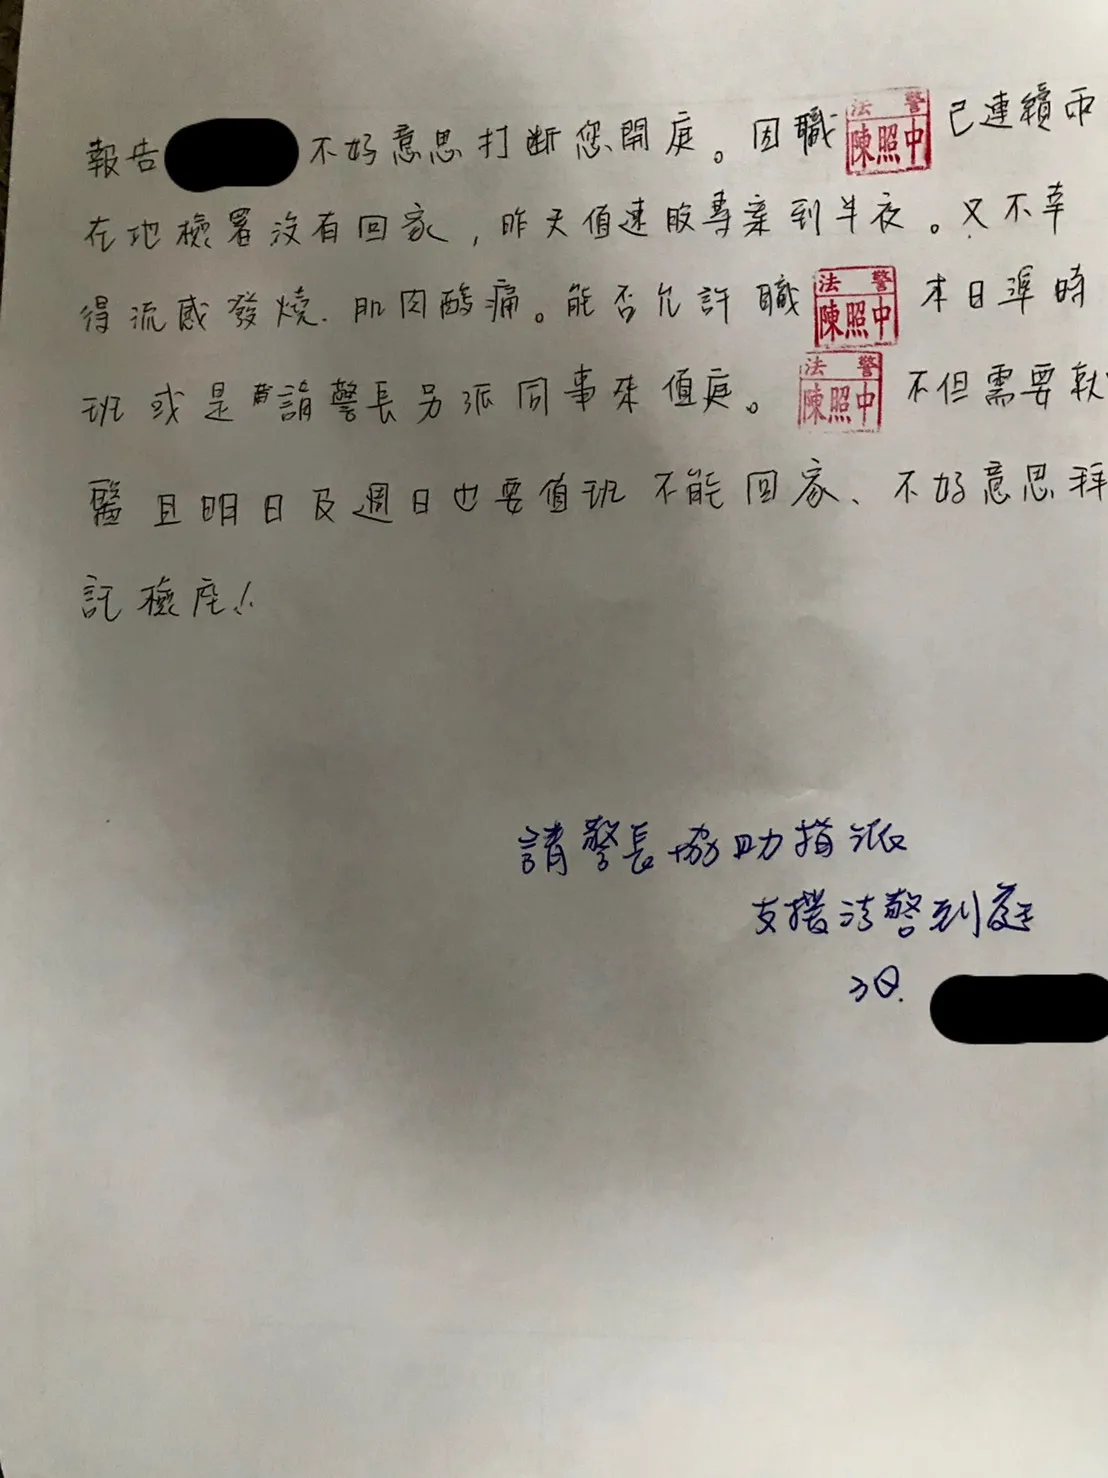 報告 不好意思打斷您開庭。因職 法警 陳照中 已連續兩
在地檢署沒有回家,昨天值速股專案到半夜。又不幸
得流感發燒、肌肉酸痛。能否允許職 法警 陳照中 本日準時
班或是請警長另派同事來值庭。法警 陳照中 不但需要就
醫且明日及週日也要值班不能回家、不好意思拜
託檢座!
請警長協助指派
支援法警到庭